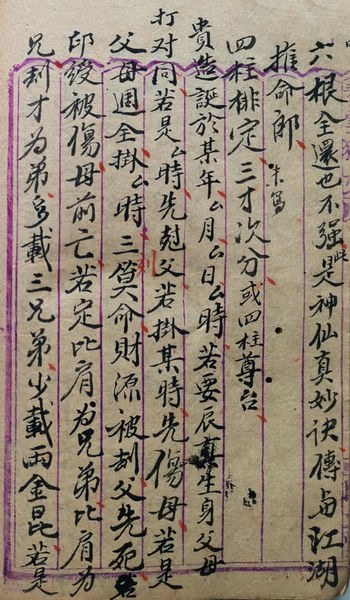 六根全還也不强此是神仙真妙诀傳与江湖
推命郎 朱篤
四柱排定三才次分或四柱尊台
貴造誕於某年厶月厶日厶時若要辰真生身父母
打对同若是厶時先尅父若掛某時先傷母若是
父母週全掛厶時三刘算命財源被刦父先死若
印绶被傷母前亡若定比肩为兄弟比肩为
兄刦才为弟多載三兄弟少載兩金昆若是